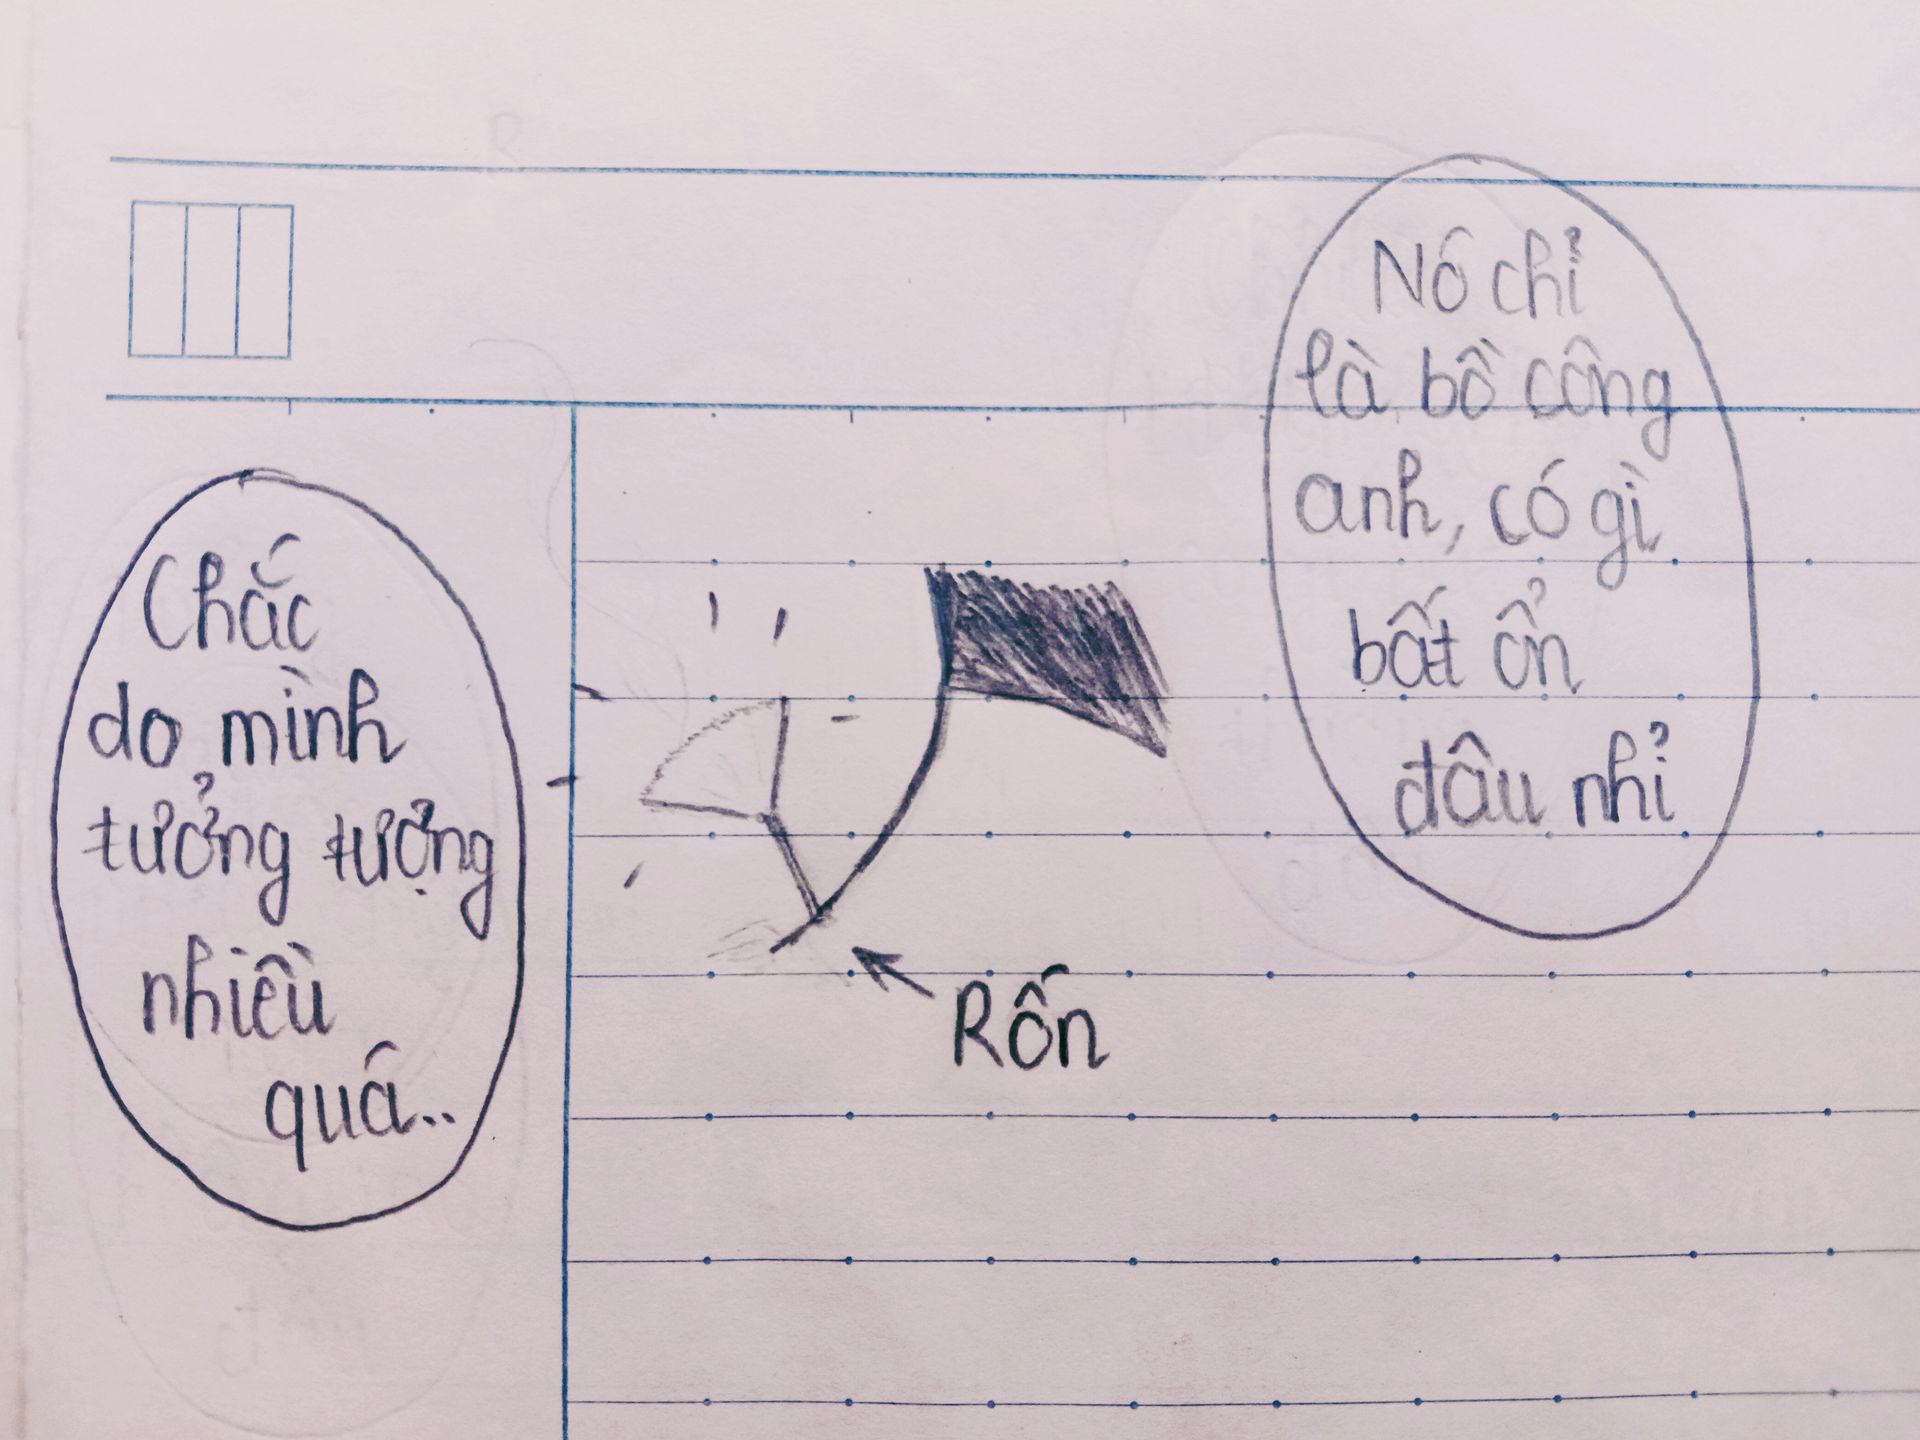 Chắc
do mình
tưởng tượng
nhiều
quá..
Nó chỉ
là bồ công
anh, có gì
bất ổn
đâu nhỉ
Rốn